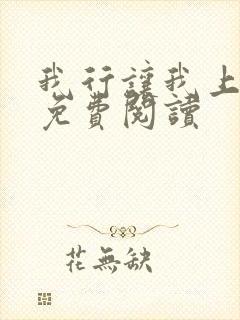 我行讓我上
免費閱讀
花無缺